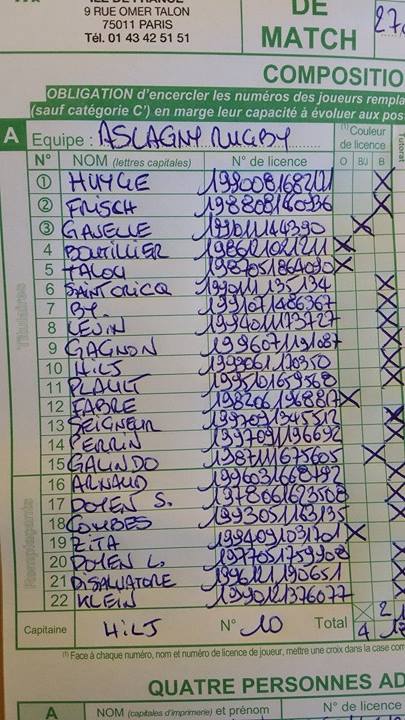 ÎLE DE FRANCE
9 RUE OMER TALON
75011 PARIS
Tél. 01 43 42 51 51
DE
MATCH
27
COMPOSITIO
OBLIGATION d'encercler les numéros des joueurs rempla
(sauf catégorie C') en marge leur capacité à évoluer aux pos
A Equipe : AS LAGNY RUGBY (1) Couleur de licence Tutorat
N° NOM (lettres capitales) N° de licence O BJ B
1 HUYGE X
2 FRISCH 1988081140936 X
3 GAVELLE 1991011144390 X
4 BOUTILLIER 1986121021211 X
5 TALOU 1987051864090 X
6 SAINTORICQ 1990111135134 X
7 BY. 1991071486367 X
8 LEVIN 1994011173727 X
9 GAGNON 1996071191087 X
10 HILT 1993061120350 X
11 PLAULT 1995101659568 X
12 FABRE 1982061968817 X
13 SEIGNEUR 1997091345512 X
14 PERRIN 1997091136692 X
15 GALINDO 1987111675605 X
16 ARNAUD 1996031668792 X
17 DOYEN S. 1978061623508 X
18 COMBES 1993051163135 X
19 ZITA 1994091031701 X
20 DOYEN L. 1977051759908 X
21 DISALVATORE 1996121190651 X
22 KLEIN 1990121376077 X
Titulaires
Remplaçants
Capitaine HILT N° 10 Total 4
(1) Face à chaque numéro, nom et numéro de licence de joueur, mettre une croix dans la case corr
QUATRE PERSONNES AD
A NOM (capitales d'imprimerie) et prénom N° de licence